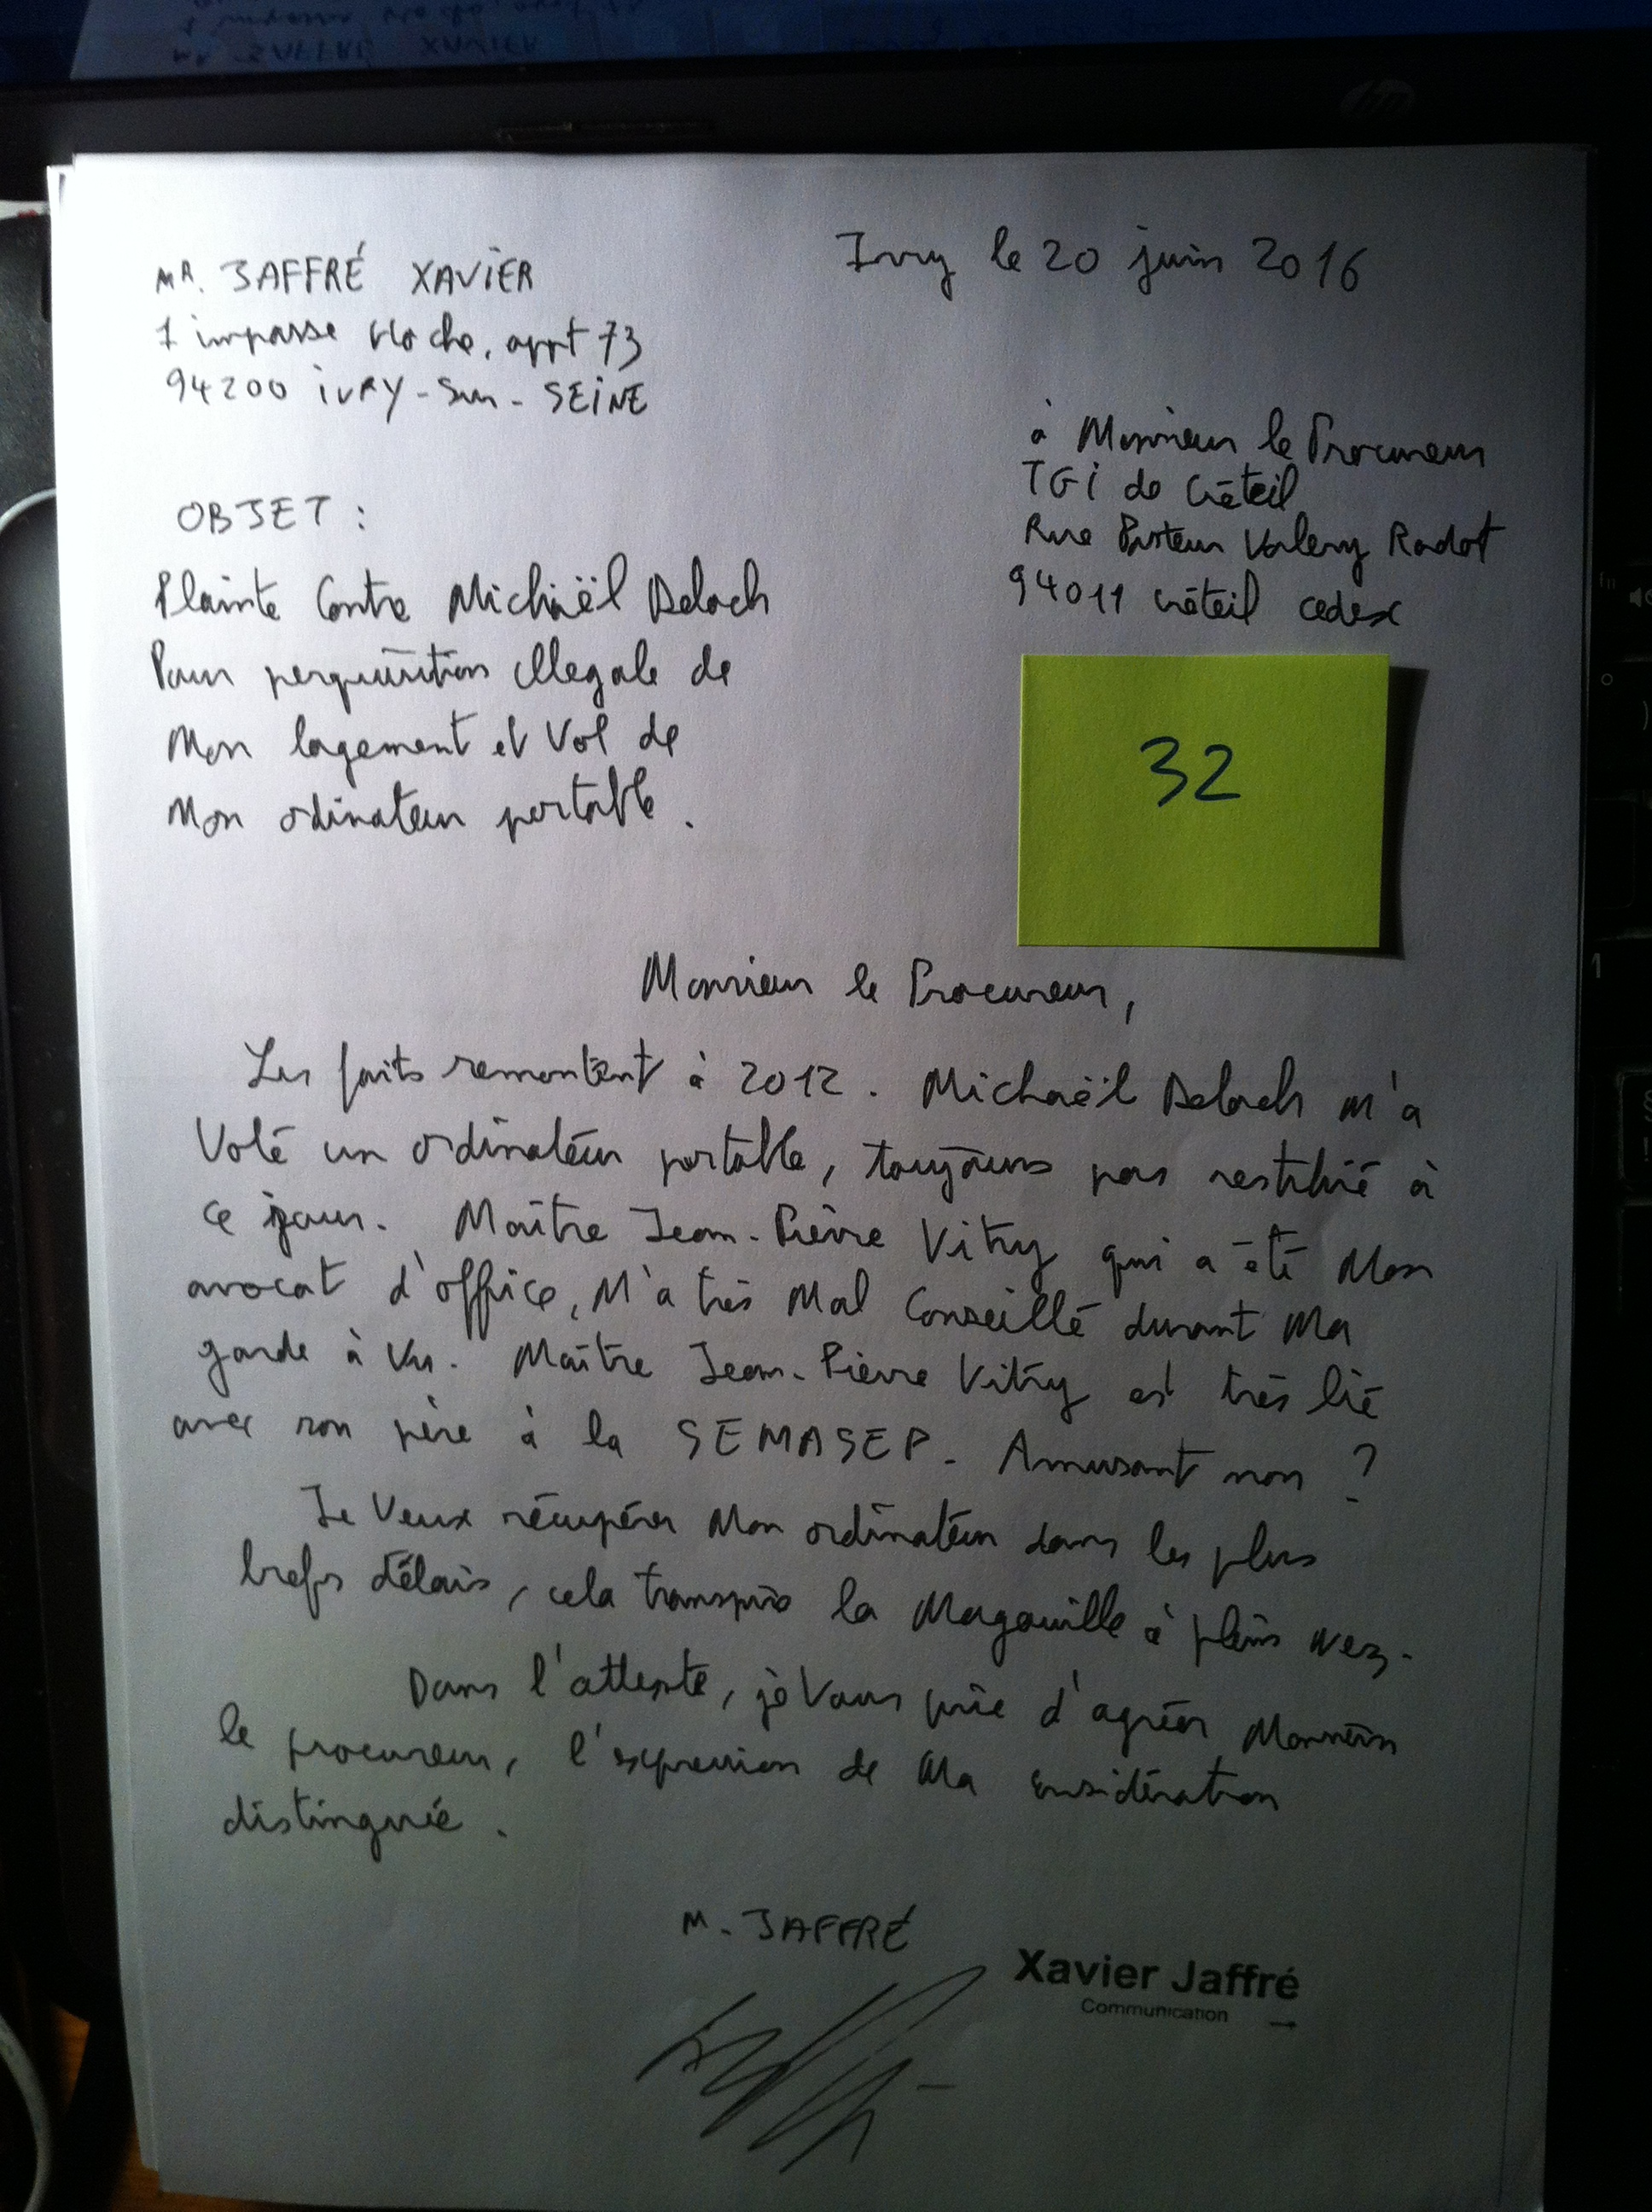 Mr. JAFFRÉ XAVIER
Ivry le 20 juin 2016
1 impasse Hoche, appt 73
94200 IVRY-Sur-SEINE
à Monsieur le Procureur
TGI de Créteil
Rue Pasteur Valery Radot
94011 Créteil cedex
OBJET :
Plainte Contre Michaël Deloch
Pour perquisition illegale de
Mon logement et Vol de
Mon ordinateur portable.
32
Monsieur le Procureur,
Les faits remontent à 2012. Michaël Deloch m'a
Volé un ordinateur portable, toujours pas restitué à
ce jour. Maître Jean-Pierre Vitry qui a été Mon
avocat d'office, M'a très Mal Conseillé durant Ma
garde à Vu. Maître Jean-Pierre Vitry est très lié
avec son père à la SEMASEP. Amusant non ?
Je Veux récupérer Mon ordinateur dans les plus
brefs délais, cela transpire la Magouille à plein nez.
Dans l'attente, je Vous prie d'agréer Monsieur
le procureur, l'expression de Ma considération
distinguée.
M. JAFFRÉ
Xavier Jaffré
Communication
hp
fn